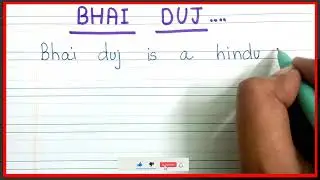 BHAI DUJ....
Bhai duj is a hindu